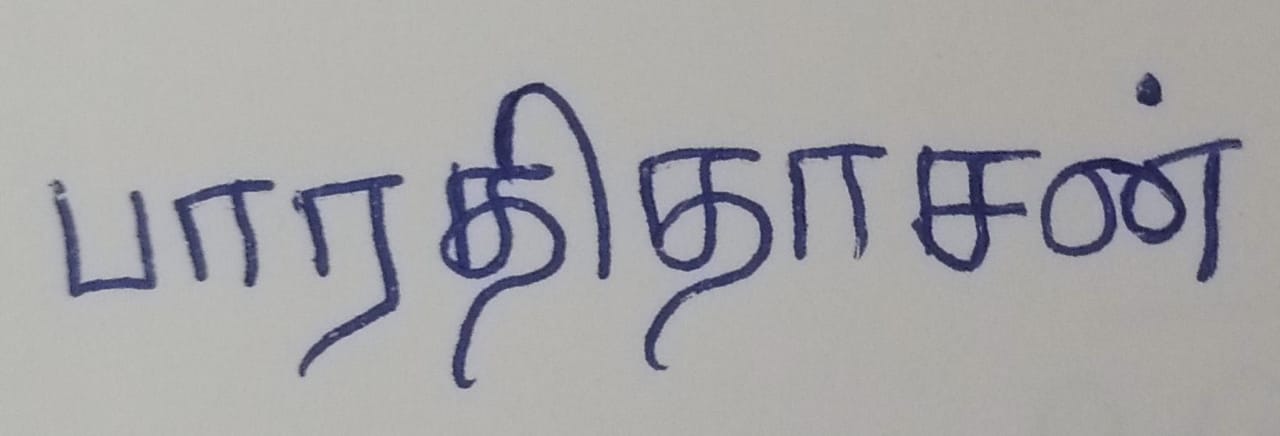 பாரதிதாசன்